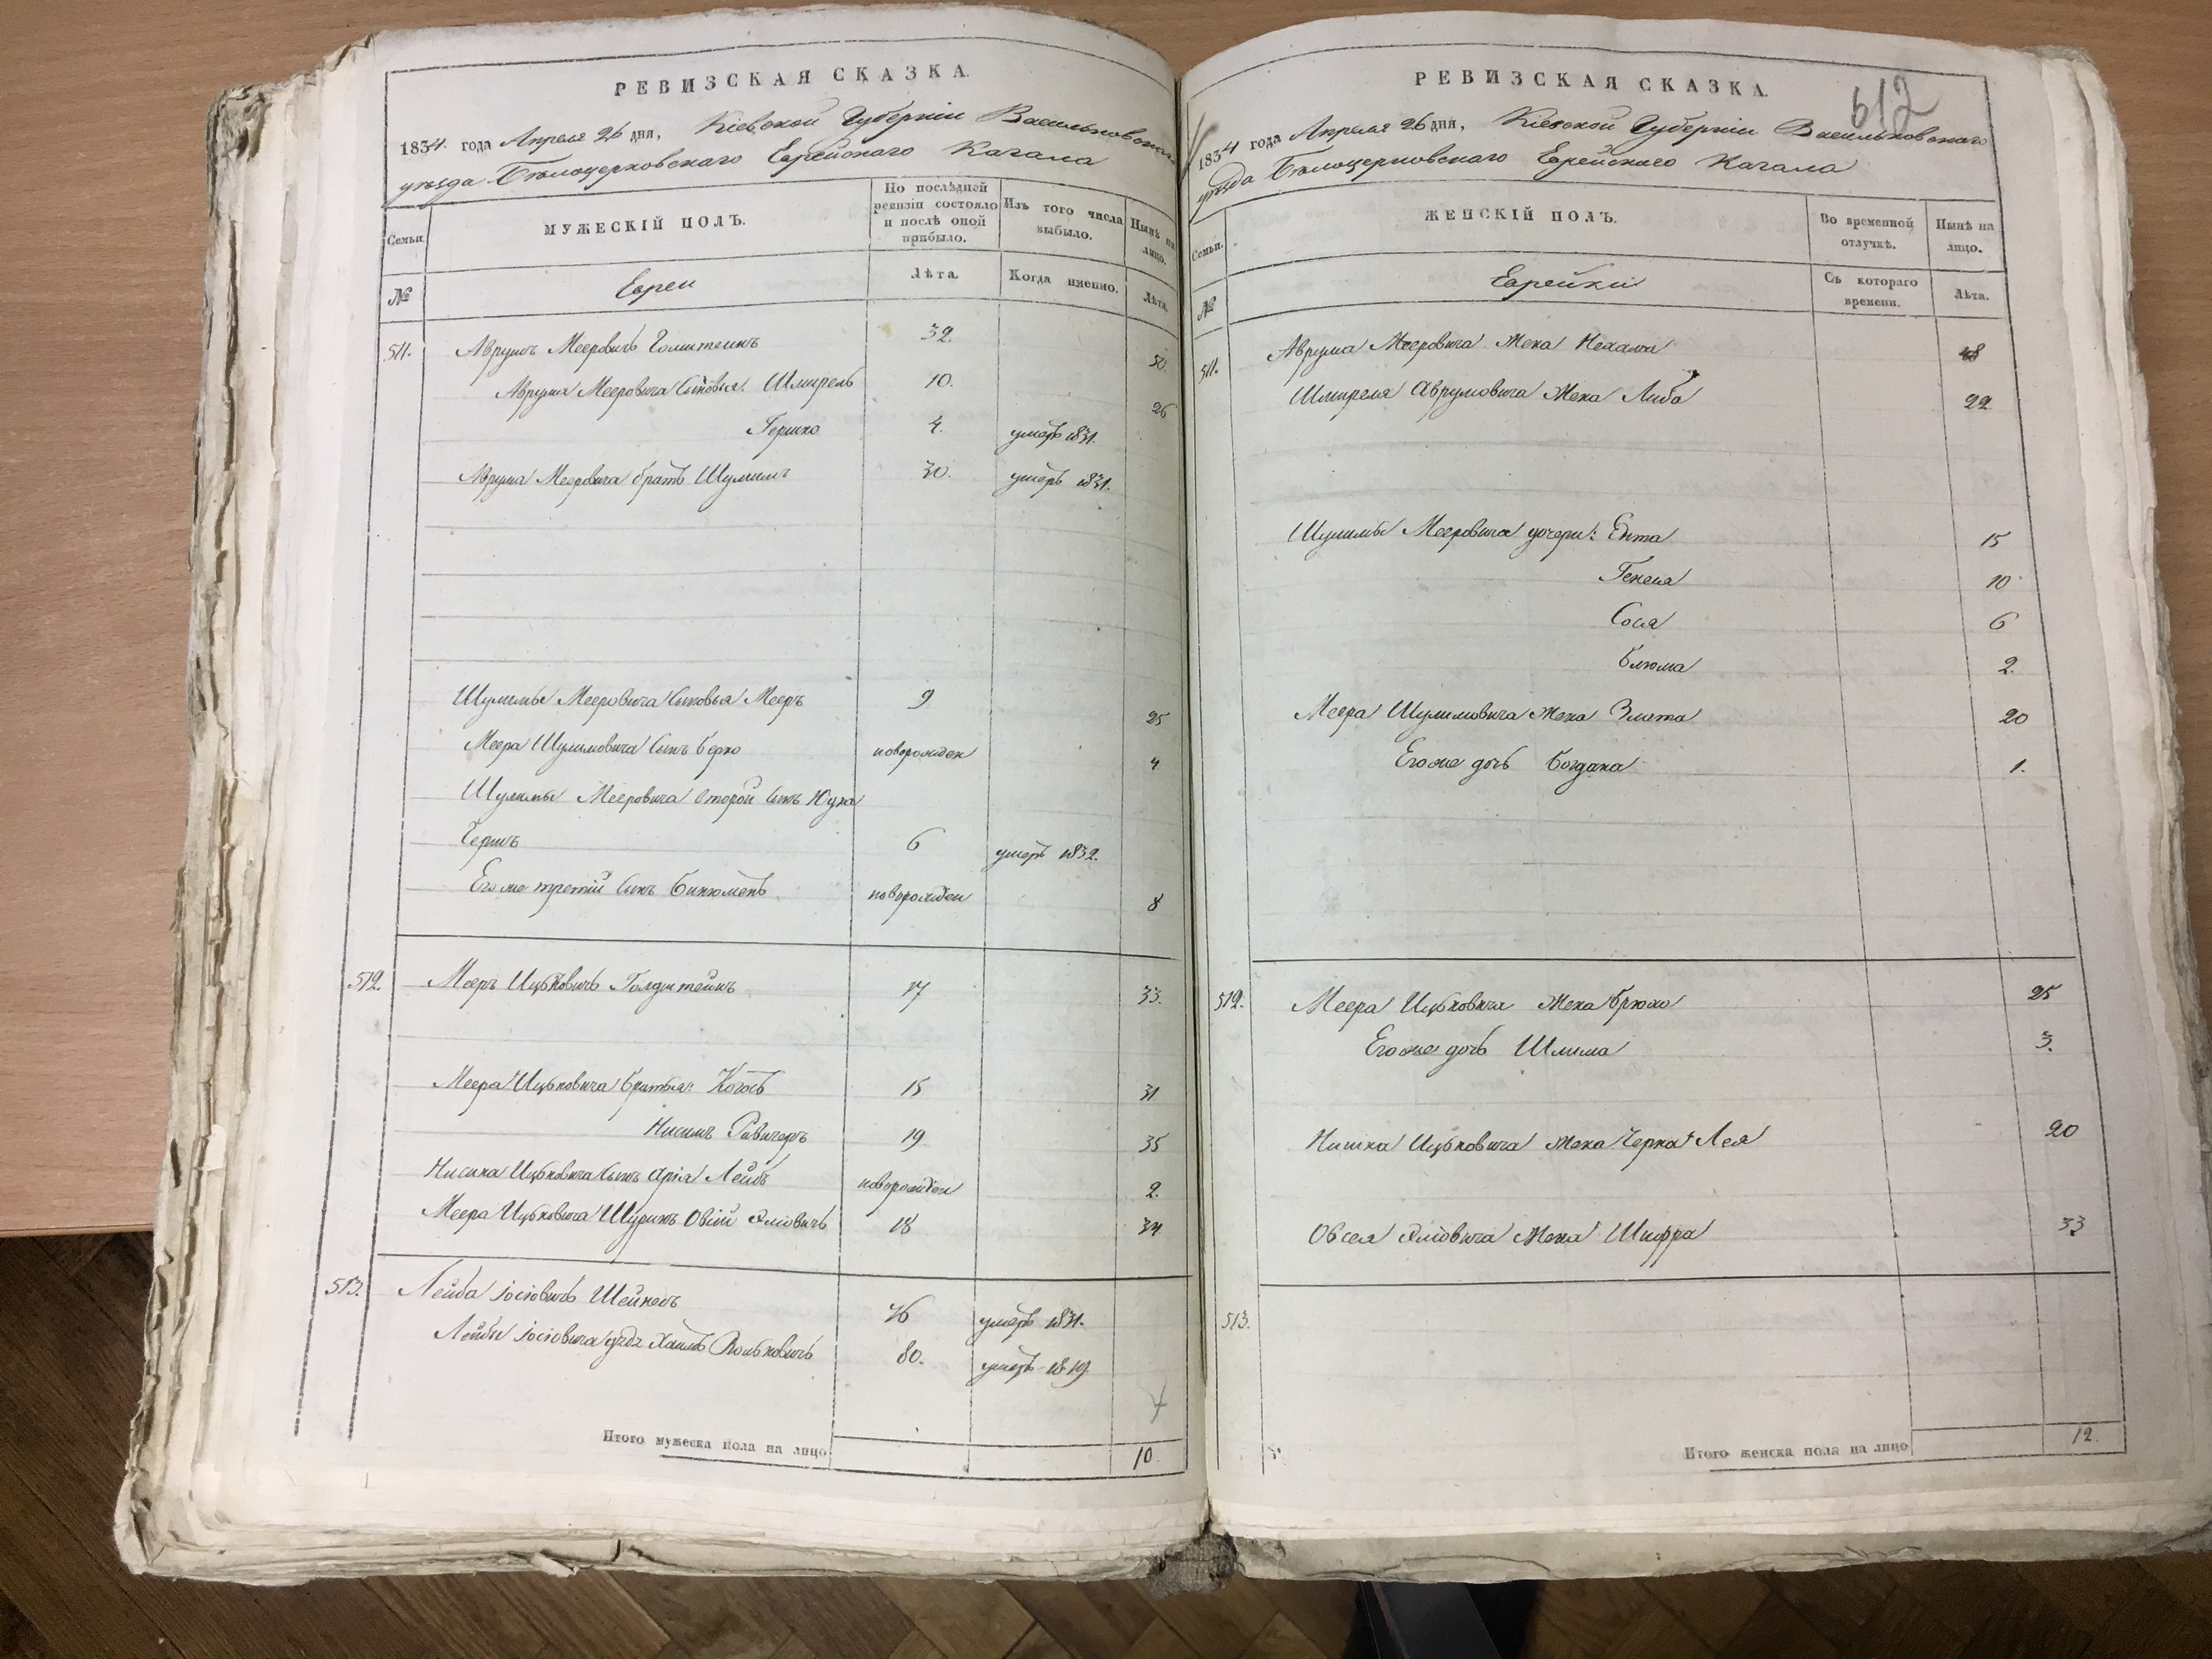 РЕВИЗСКАЯ СКАЗКА.
1834. года Апреля 26 дня, Кіевской Губерніи Васильковскаго
уѣзда Бѣлоцерковскаго Еврейскаго Кагала
Семьи.
МУЖЕСКІЙ ПОЛЪ.
По послѣдней ревизіи состояло и послѣ оной прибыло.
Изъ того числа выбыло.
Нынѣ на лицо.
№
Евреи
Лѣта.
Когда именно.
Лѣта.
511. Аврумъ Мееровичъ 32. 50.
Аврума Мееровича сыновья: Шмирель 10. 26
Гершко 4. умеръ 1831.
Аврума Мееровича братъ Шулимъ 30. умеръ 1831.
Шулимы Мееровича сыновья Мееръ 9 25
Меера Шулимовича сынъ Берко новорожден 4
Шулимы Мееровича второй сынъ Юдка
Гершъ 6 умеръ 1832.
Его же третій сынъ Бинюменъ новорожден 8
512. Мееръ Ицковичъ Голдштейнъ 17 33.
Меера Ицковича братья: 15 31
Нисимъ 19 35
Нисина Ицковича сынъ Арія Лейбъ новорожден 2.
Меера Ицковича Шуринъ Овсій 18 34
513. Лейба Іосіовичъ 46 умеръ 1831.
Лейбы Іосіовича дядя Хаимъ Волковичъ 80. умеръ 1819.
Итого мужеска пола на лицо 10.
РЕВИЗСКАЯ СКАЗКА.
612
1834 года Апреля 26 дня, Кіевской Губерніи Васильковскаго
уѣзда Бѣлоцерковскаго Еврейскаго Кагала
Семьи.
ЖЕНСКІЙ ПОЛЪ.
Во временной отлучкѣ.
Нынѣ на лицо.
№
Еврейки
Съ котораго времени.
Лѣта.
511. Аврума Мееровича Жена Нехама 48
Шмиреля Аврумовича Жена Либа 22
Шулимы Мееровича дочери: Ента 15
Генеся 10
Сося 6
Блюма 2.
Меера Шулимовича Жена Злота 20
Его же дочь Богдана 1.
512. Меера Ицковича Жена Брюха 25
Его же дочь Шлима 3.
Нишка Ицковича Жена Черна Лея 20
Овсея Жена Шифра 33
513.
Итого женска пола на лицо 12.